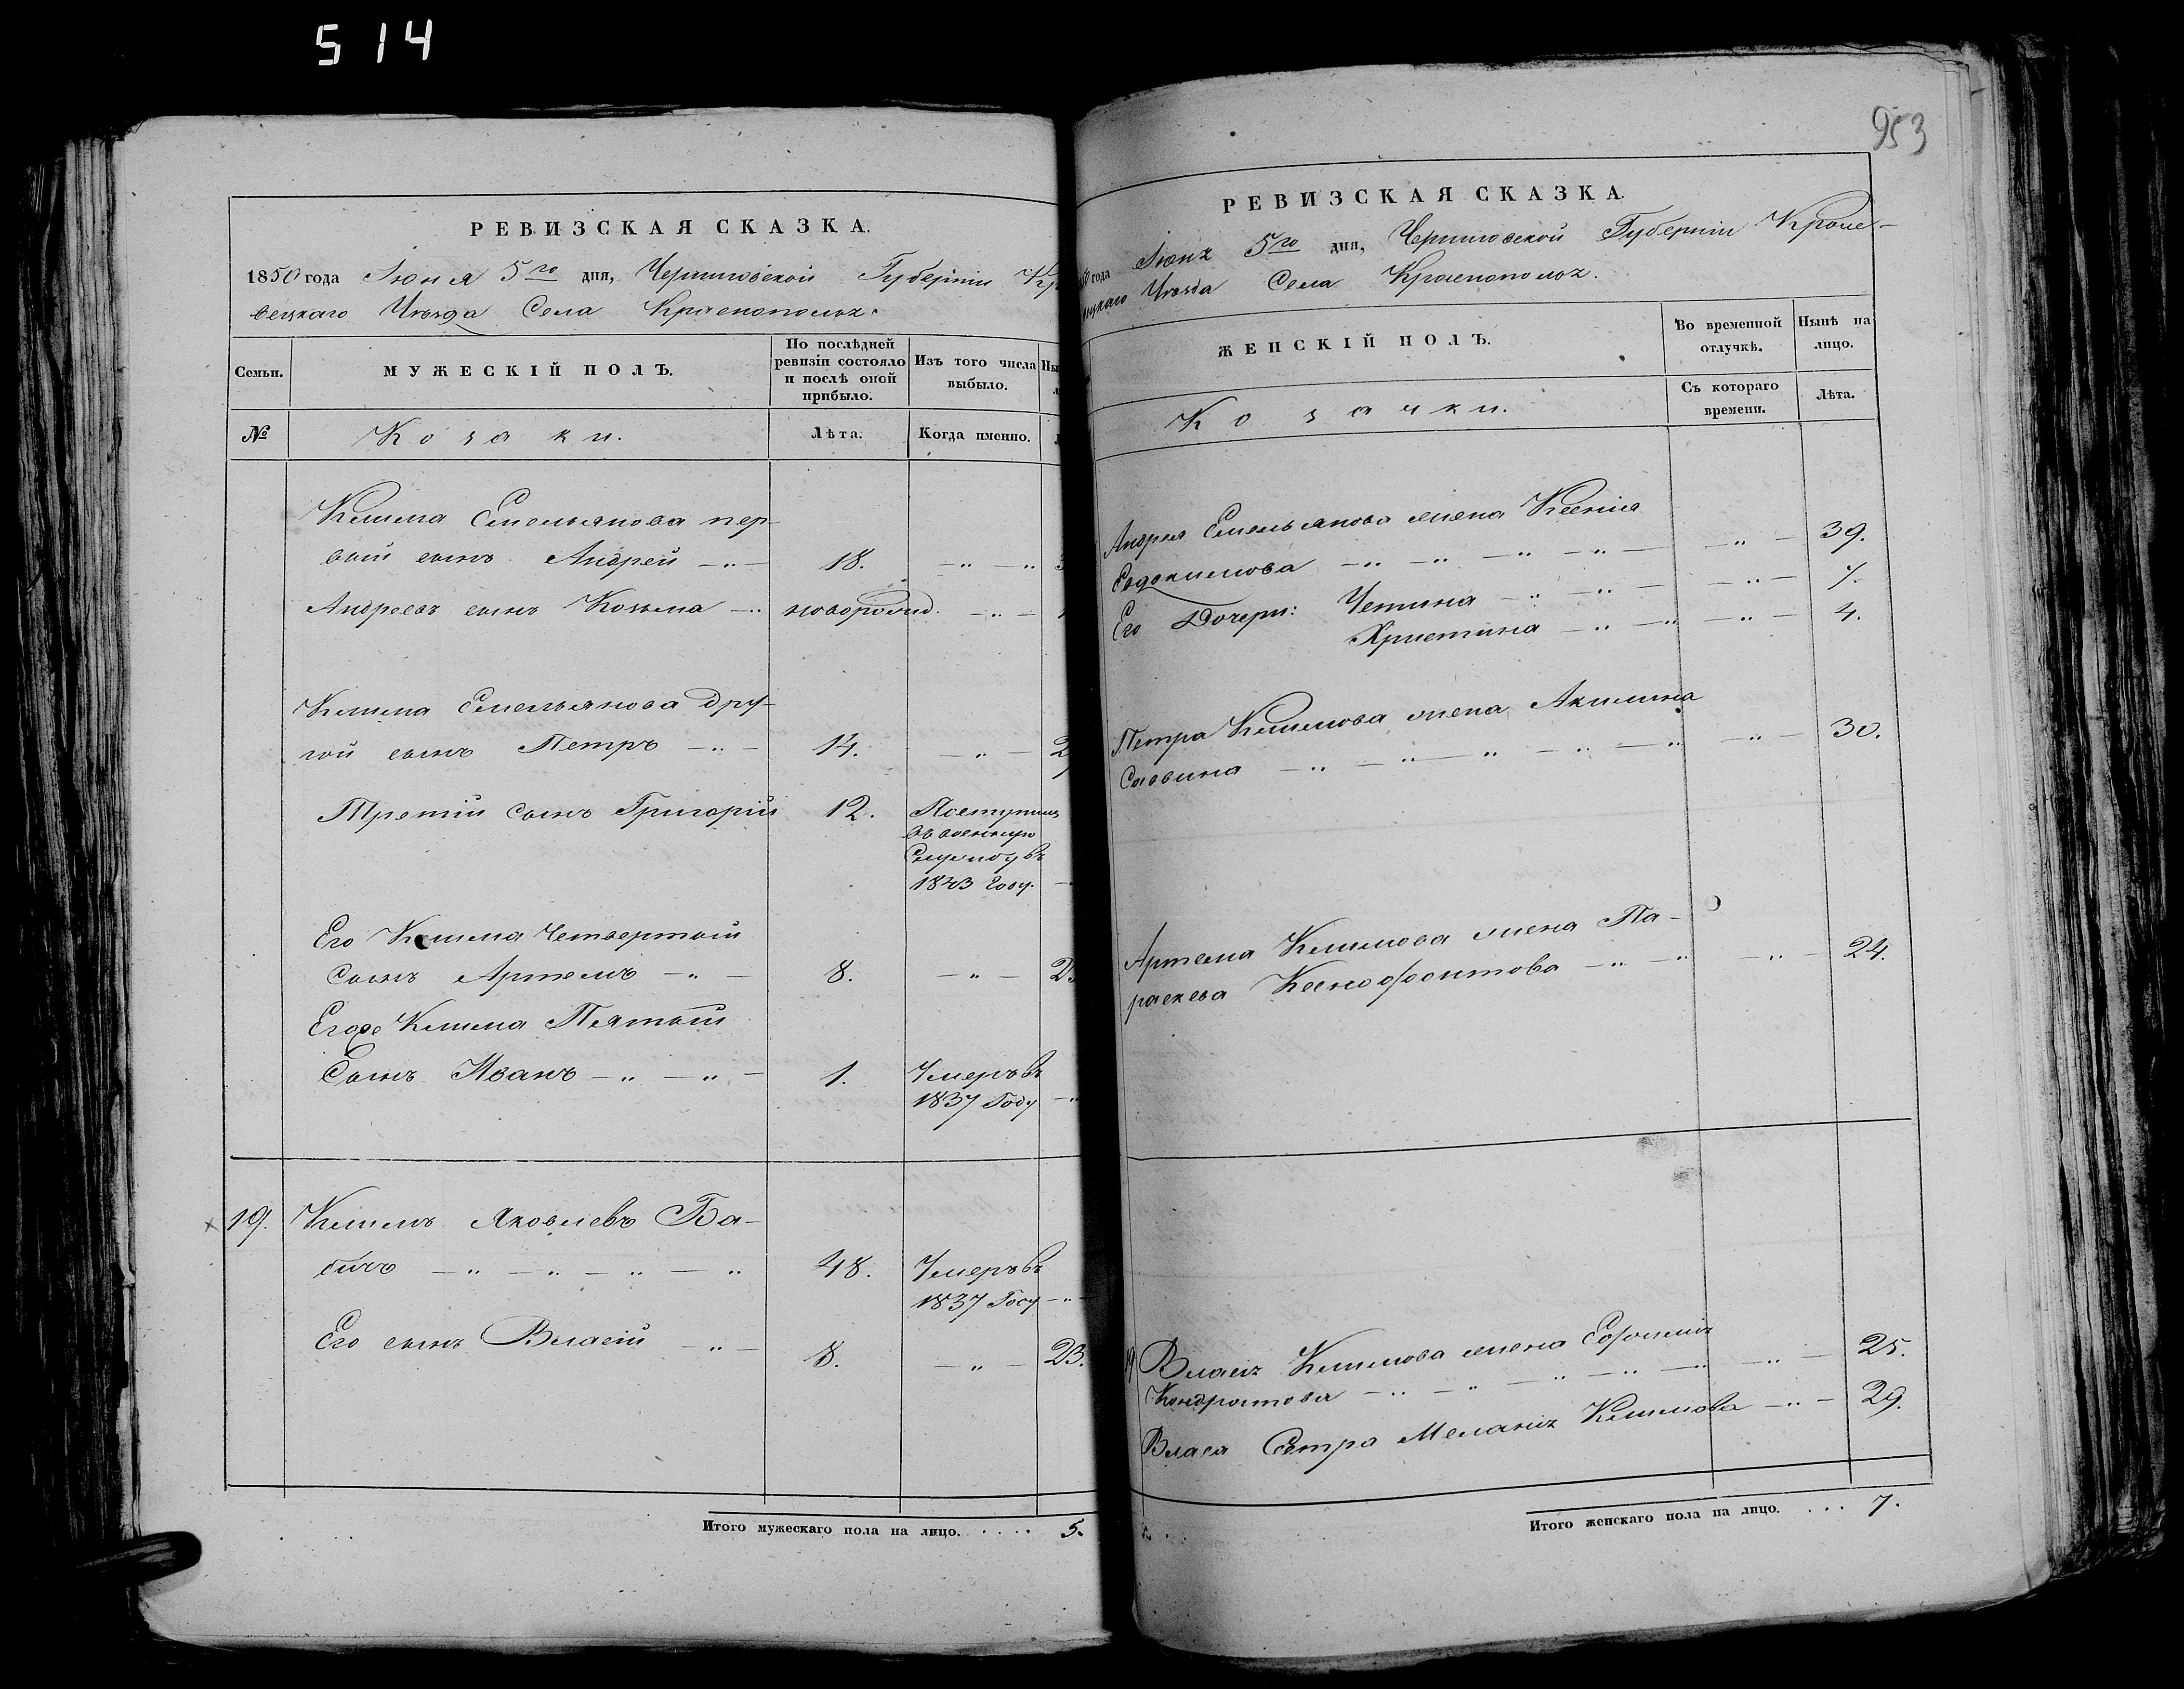 514
РЕВИЗСКАЯ СКАЗКА.
1850 года Іюня 5го дня, Черниговской Губерніи Кр
вецкаго Уѣзда Села Краснополья.
Семьи.
МУЖЕСКІЙ ПОЛЪ.
По послѣдней ревизіи состояло и послѣ оной прибыло.
Изъ того числа выбыло.
№
Козаки.
Лѣта.
Когда именно.
Клима Емельянова пер-
вый сынъ Андрей — „ — 18. — „ — „
Андреевъ сынъ Козьма — „ новорожд. — „ —
Клима Емельянова дру-
гой сынъ Петръ — „ — 14. — „ — 2
Третій сынъ Григорій 12. Поступилъ
въ военную
Службу въ
1843 Году.
Его Клима Четвертый
Сынъ Артемъ — „ — 8. — „ — 2
Егоже Клима Пятый
Сынъ Иванъ — „ — „ — 1. Умеръ въ
1837 Году — „
19. Климъ Яковлевъ Ба-
бичъ — „ — „ — „ — „ 48. Умеръ въ
1837 Году — „ —
Его сынъ Власій — „ — 8. — „ — 23.
Итого мужескаго пола на лицо. . . . . 5.
953
РЕВИЗСКАЯ СКАЗКА.
года Іюня 5го дня, Черниговской Губерніи Кроле-
вецкаго Уѣзда Села Краснополья.
ЖЕНСКІЙ ПОЛЪ.
Во временной отлучкѣ.
Нынѣ на лицо.
Козачки.
Съ котораго времени.
Лѣта.
Андрея Емельянова жена Ксенія
Евдокимова — „ — „ — „ — „ — — „ — 39.
Его Дочери: Устина — „ — „ — — „ — 7.
Христина — „ — „ — „ — 4.
Петра Климова жена Акилина
Саввина — „ — „ — „ — „ — „ — „ — 30.
Артема Климова жена Па-
раскева Ксенофонтова — „ — „ — „ — 24.
19 Власія Климова жена Ефимія
Кондратова — „ — „ — „ — „ — „ — 25.
Власа Сестра Меланія Климова — „ — 29.
Итого женскаго пола на лицо. . . . 7.